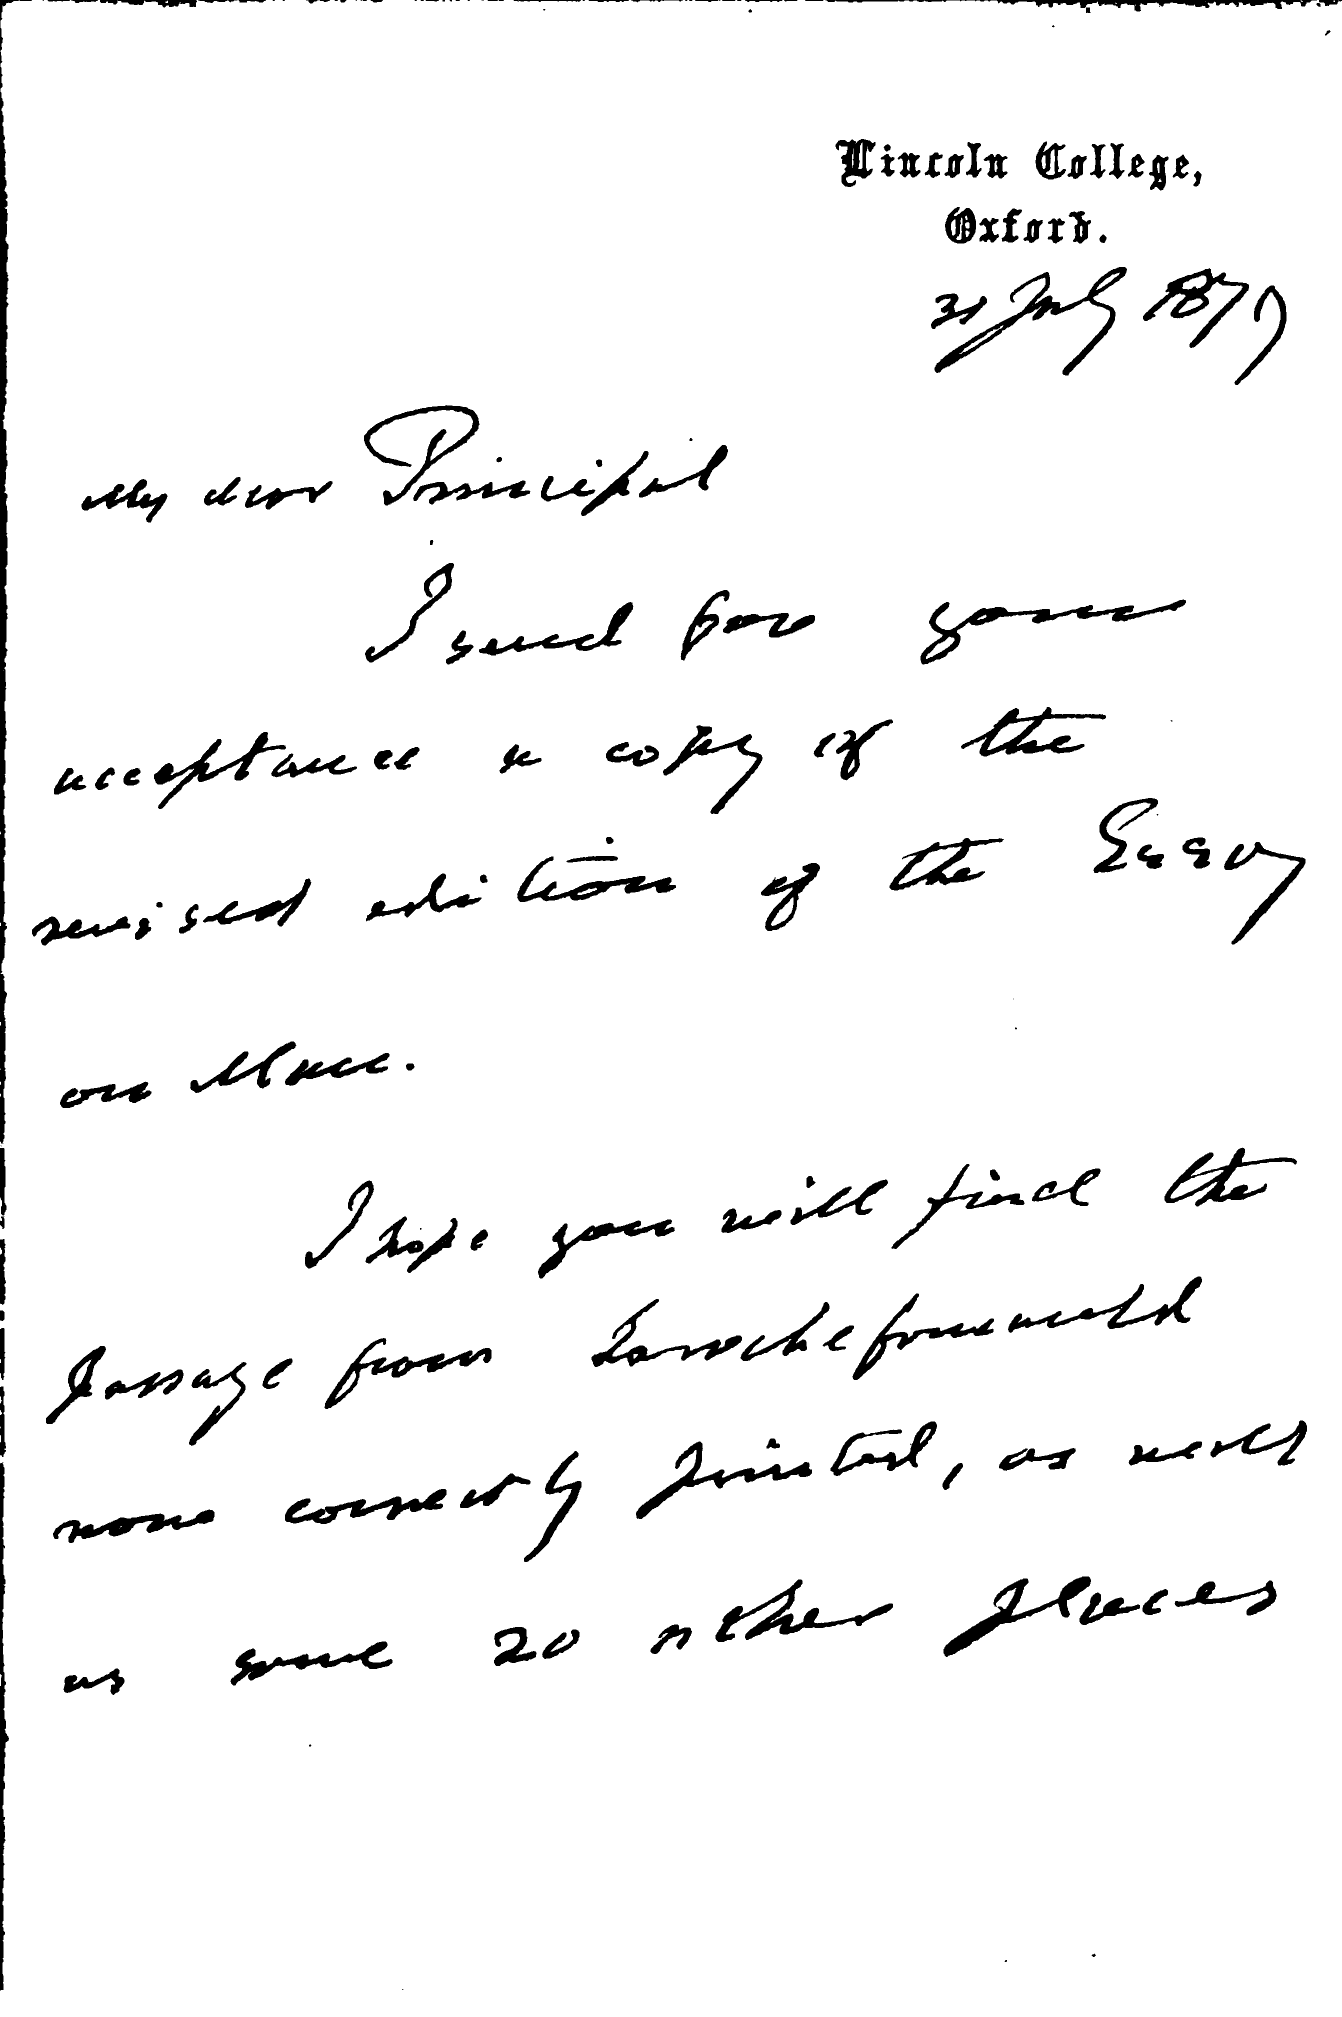 Lincoln College,
Oxford.
31 July 1877
My dear Principal
I send for your
acceptance a copy of the
revised edition of the Essay
on Man.
I hope you will find the
passage from Larochefoucauld
more correctly printed, as well
as some 20 other places